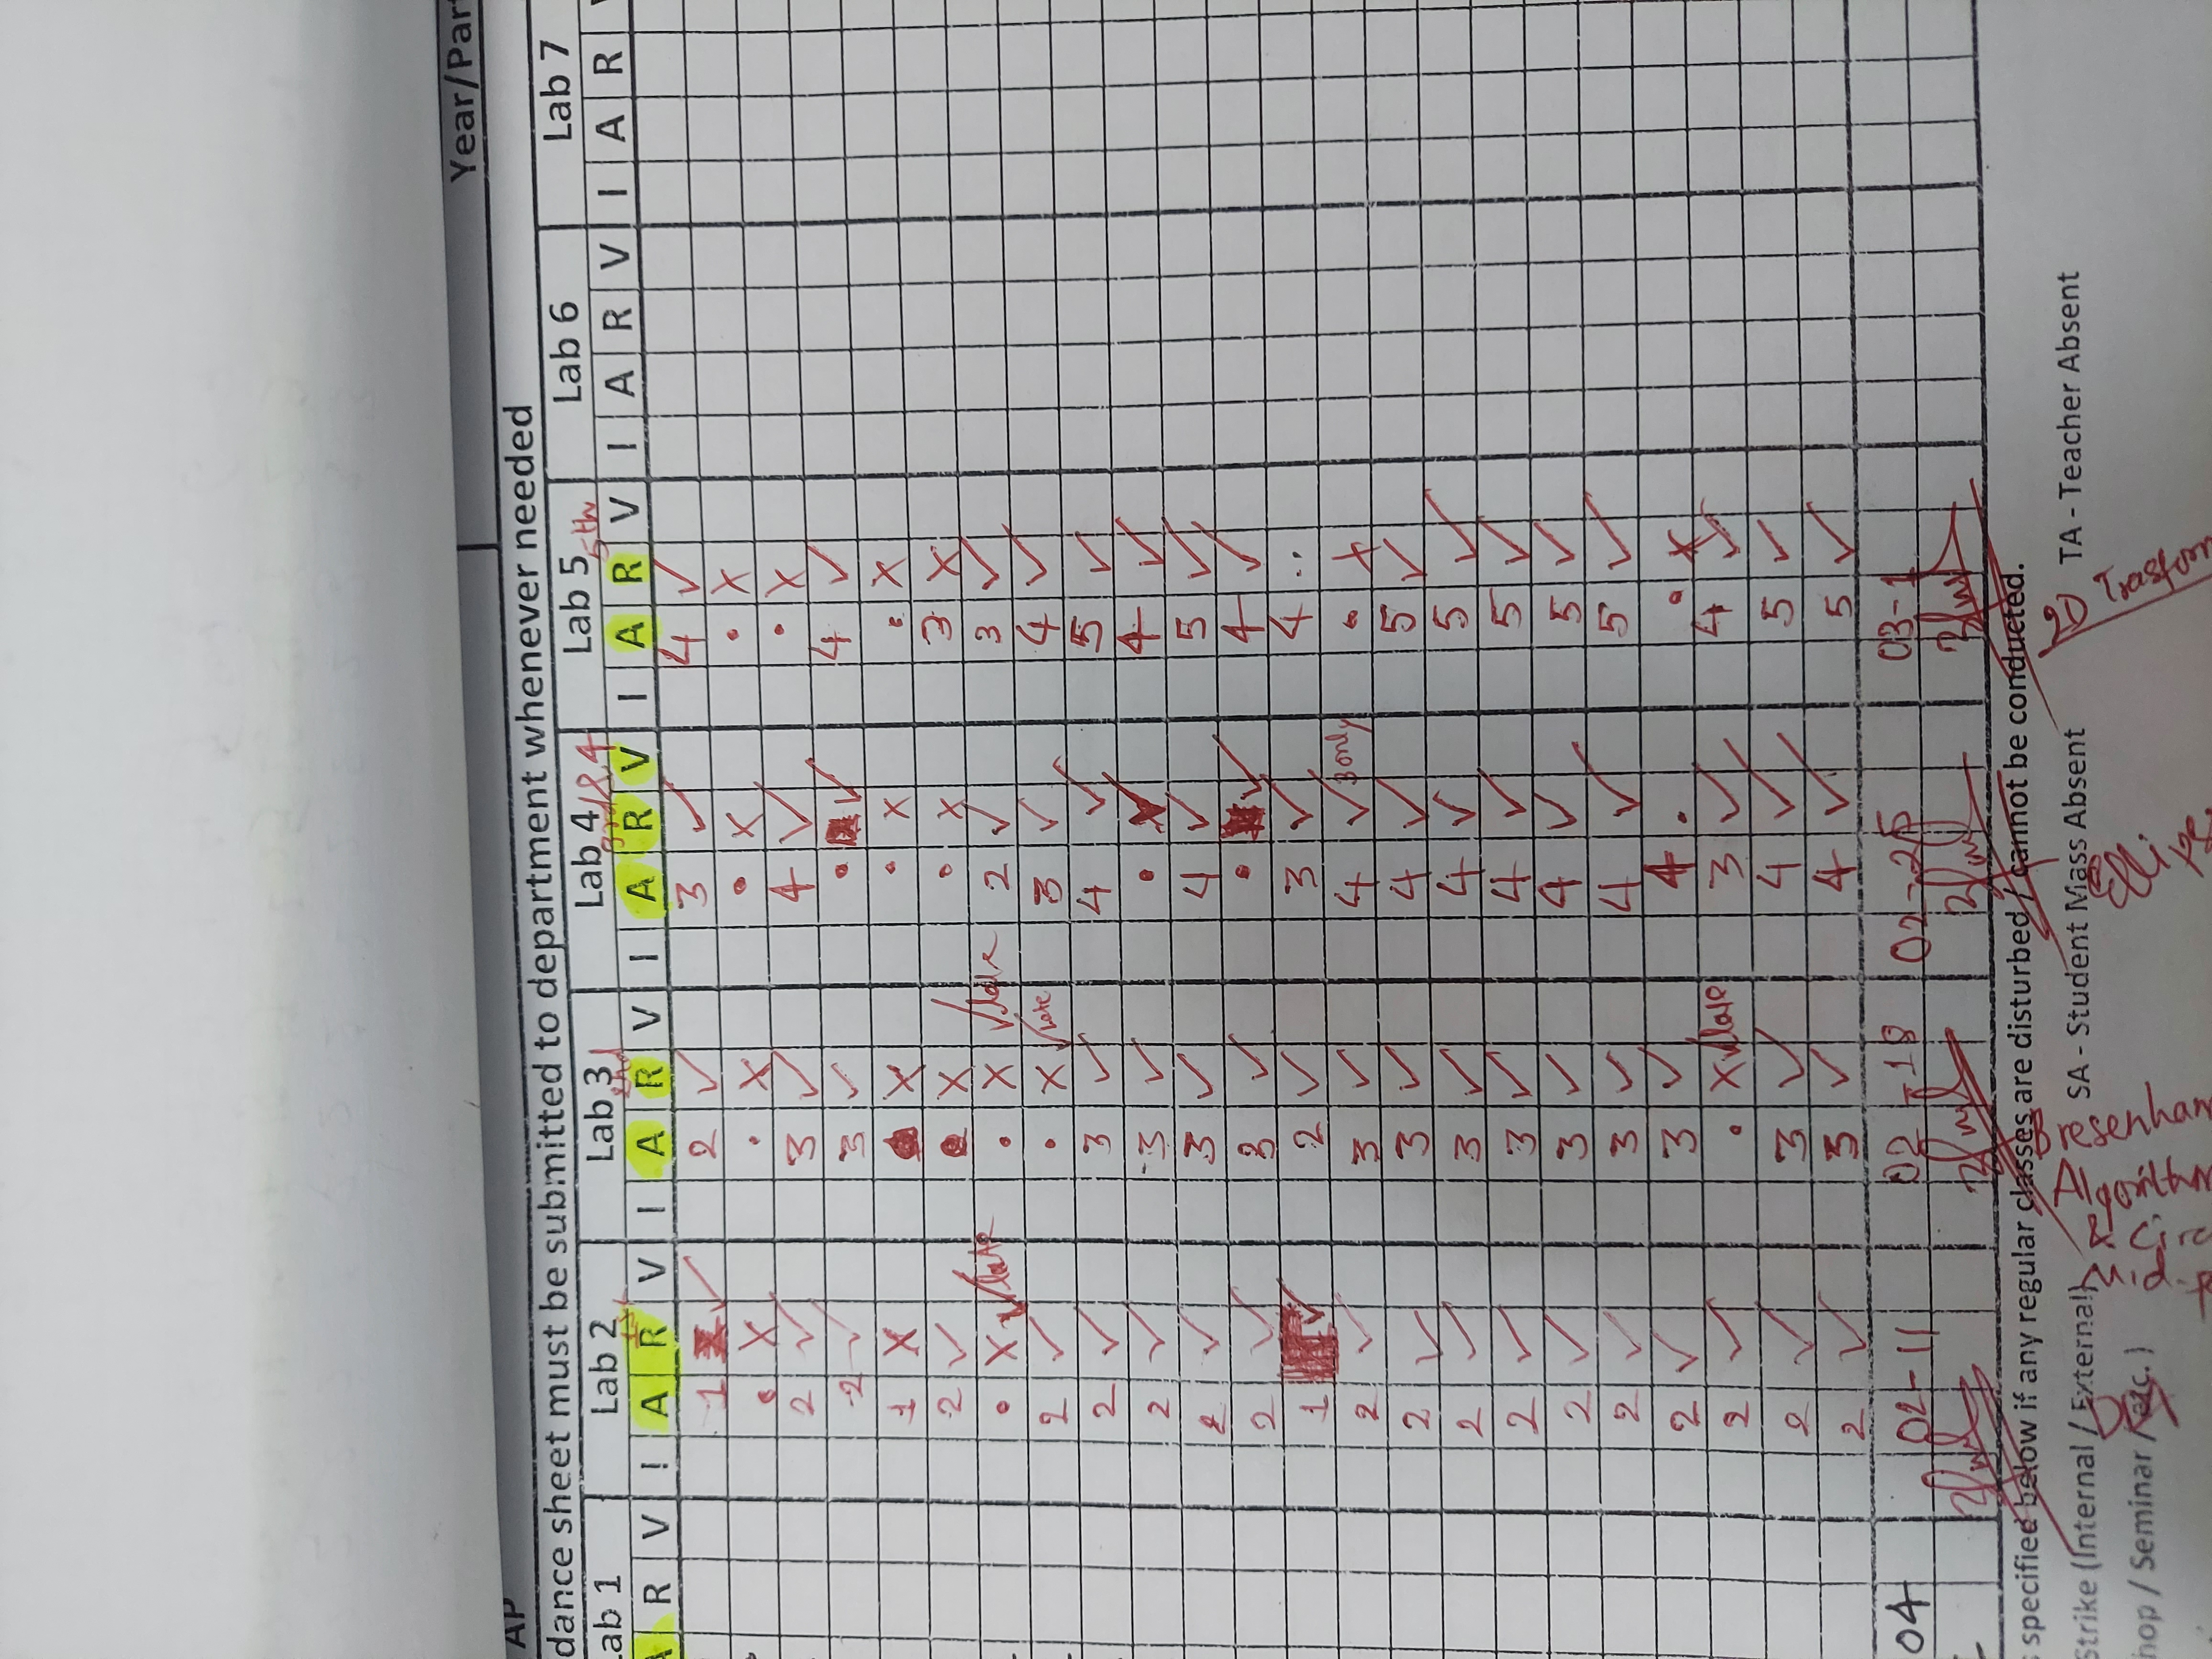 Year/Par
AP
dance sheet must be submitted to department whenever needed
Lab 1 Lab 2 Lab 3 Lab 4 Lab 5 Lab 6 Lab 7
1st 2nd 3rd & 4 5th
A R V ! A R V I A R V I A R V I A R V I A R V I A R
1 ✓ 2 ✓ 3 ✓ 4 ✓
• X • X • X • X
2 ✓ 3 ✓ 4 ✓ • X
2 ✓ 3 ✓ • ✓ 4 ✓
1 X X • X • X
2 ✓ • X • X 3 X
• X ✓ late • X ✓ late 2 ✓ 3 ✓
2 ✓ • X ✓ late 3 ✓ 4 ✓
2 ✓ 3 ✓ 4 ✓ 5 ✓
2 ✓ 3 ✓ • ✓ 4 ✓
2 ✓ 3 ✓ 4 ✓ 5 ✓
2 ✓ 3 ✓ • ✓ 4 ✓
1 ✓ 2 ✓ 3 ✓ 4 ..
2 ✓ 3 ✓ 4 ✓ 3 only • X
2 ✓ 3 ✓ 4 ✓ 5 ✓
2 ✓ 3 ✓ 4 ✓ 5 ✓
2 ✓ 3 ✓ 4 ✓ 5 ✓
2 ✓ 3 ✓ 4 ✓ 5 ✓
2 ✓ 3 ✓ 4 ✓ 5 ✓
2 ✓ 3 ✓ 4 • • X
2 ✓ • X ✓ late 3 ✓ 4 ✓
2 ✓ 3 ✓ 4 ✓ 5 ✓
2 ✓ 3 ✓ 4 ✓ 5 ✓
04 02-11 02-18 02-25 03-1
specified below if any regular classes are disturbed / cannot be conducted.
Strike (Internal / External) SA - Student Mass Absent TA - Teacher Absent
hop / Seminar / etc. )
DDA
Bresenham
Algorithm
& Circ
Mid-P
Ellipse
2D Trasfom